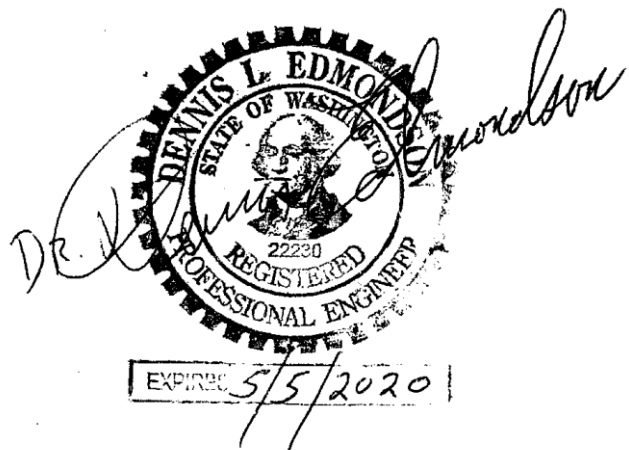 DENNIS L. EDMONDSON
STATE OF WASHINGTON
22230
REGISTERED
PROFESSIONAL ENGINEER
Dr. Dennis L Edmondson
EXPIRES 5/5/2020